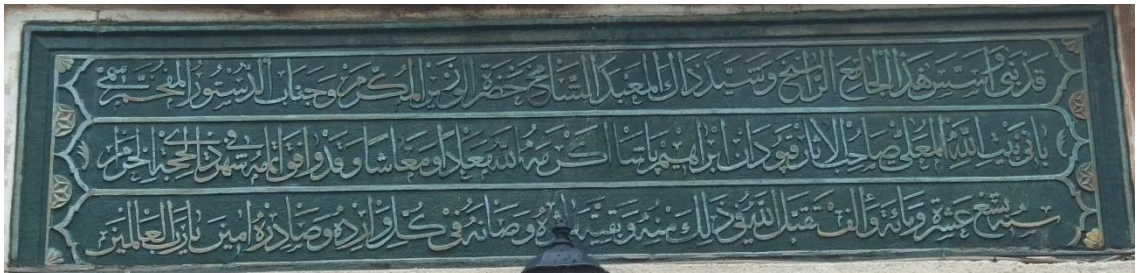 قد بنى وأسس هذا الجامع الراسخ وتشيد ذاك المعبد الشامخ حضرة المكرم وجناب الدستور المفخم سمي
باني بيت الله المعلى صاحب الآثار قپودان ابراهيم پاشا اكرمه الله معادا ومعاشا وقد وافق في شهر ذي الحجة الحرام
سنة تسع عشرة ومائة وألف تقبل الله ذلك منه وصانه في كل وارده وصادره امين يا رب العالمين